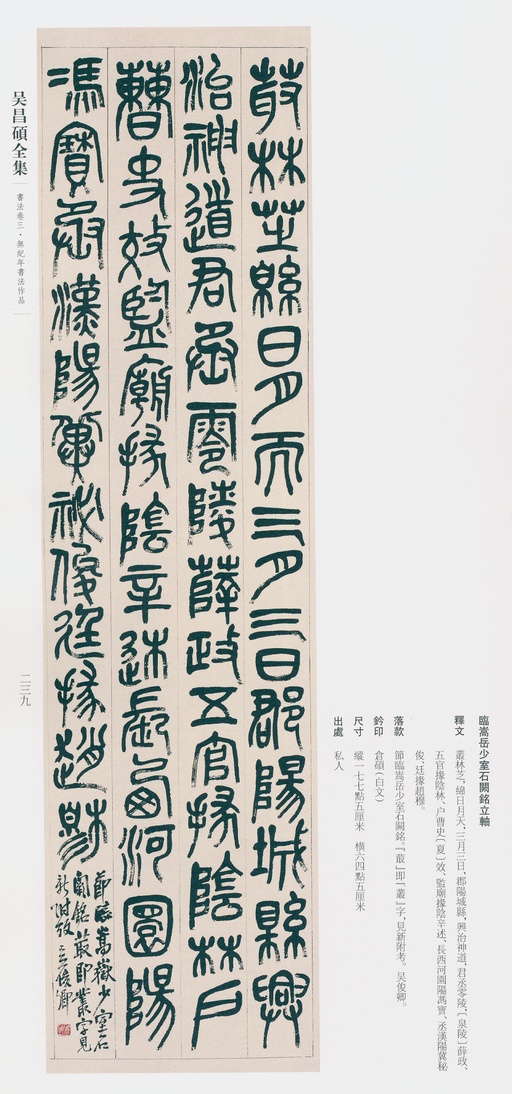 臨嵩岳少室石闕銘立軸
釋文 叢林芝,綿日月天,三月三日,郡陽城縣,興治神道,君丞零陵,〔泉陵〕薛政、
五官掾陰林、户曹史〔夏〕效、監廟掾陰辛述、長西河圜陽馮寶、丞漢陽冀秘
俊、廷掾趙穆。
落款 節臨嵩岳少室石闕銘。『菆』即『叢』字,見新附考。吴俊卿。
鈐印 倉碩(白文)
尺寸 縱一七七點五厘米 橫六四點五厘米
出處 私人
菆林芝緜日月而三月三日郡陽城縣興
治神道君丞零陵薛政五官掾陰林户
曹史效監廟掾陰辛述長西河圜陽
馮寶丞漢陽冀祕俊廷掾趙穆
節臨嵩嶽少室石
闕銘菆即叢字見
新附攷 吴俊卿
吴昌碩全集
書法卷三·無紀年書法作品
二三九